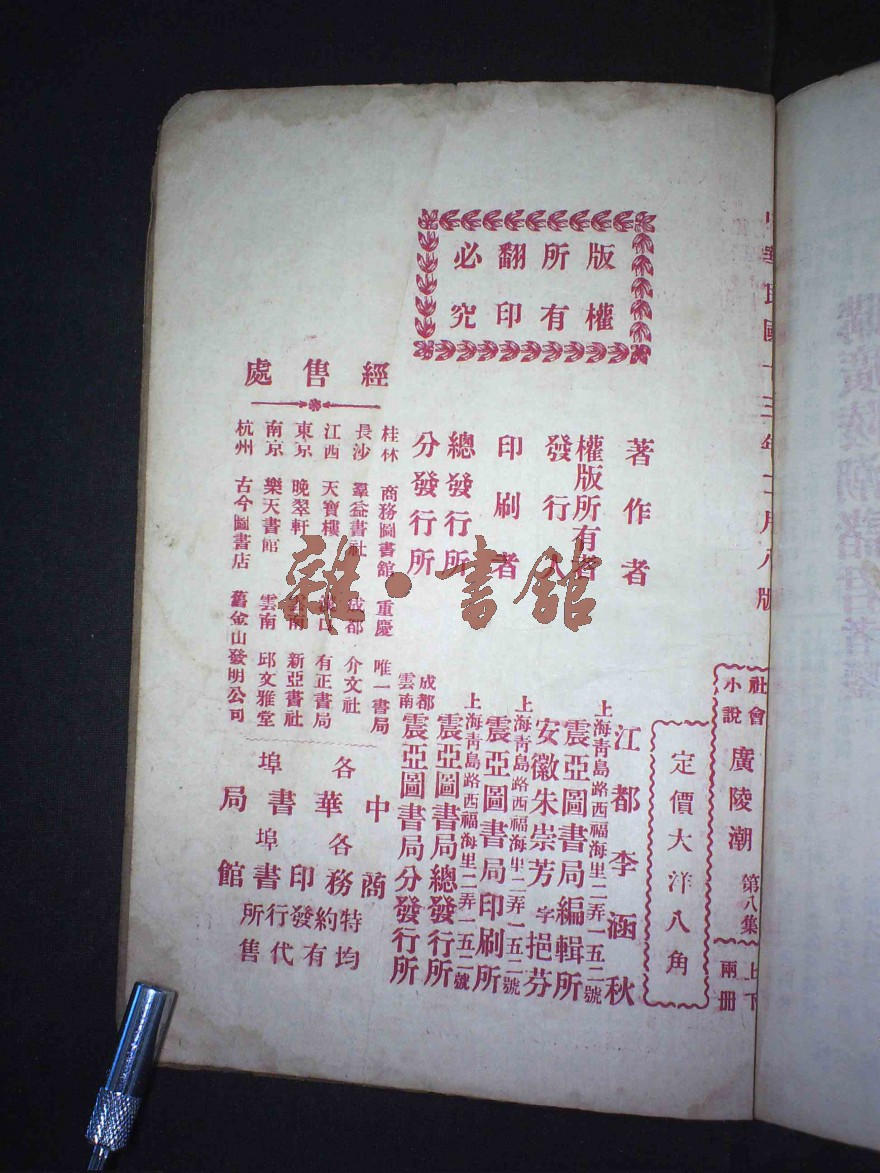 中華民國十三年二月八版
社會小說
廣陵潮
第八集
上下兩册
定價大洋八角
版權所有翻印必究
著作者
江都李涵秋
權版所有者
上海靑島路西福海里二弄一五二號
震亞圖書局編輯所
發行人
安徽朱崇芳字挹芬
印刷者
上海靑島路西福海里二弄一五二號
震亞圖書局印刷所
總發行所
上海靑島路西福海里二弄一五二號
震亞圖書局總發行所
分發行所
成都雲南
震亞圖書局分發行所
經售處
桂林 商務圖書館 重慶 唯一書局
長沙 羣益書社 成都 介文社
江西 天寶樓 有正書局
東京 晚翠軒 雲南 新亞書社
南京 樂天書館 雲南 邱文雅堂
杭州 古今圖書店 舊金山發明公司
各埠中華書局
各埠商務印書館
特約發行所
均有代售
購廣陵潮諸君者鑒
雜·書館